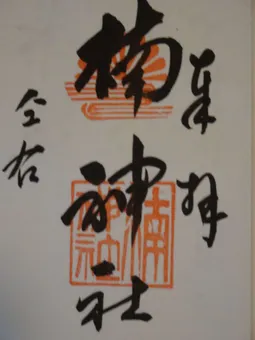 奉拝
楠神社
仝右
楠神社